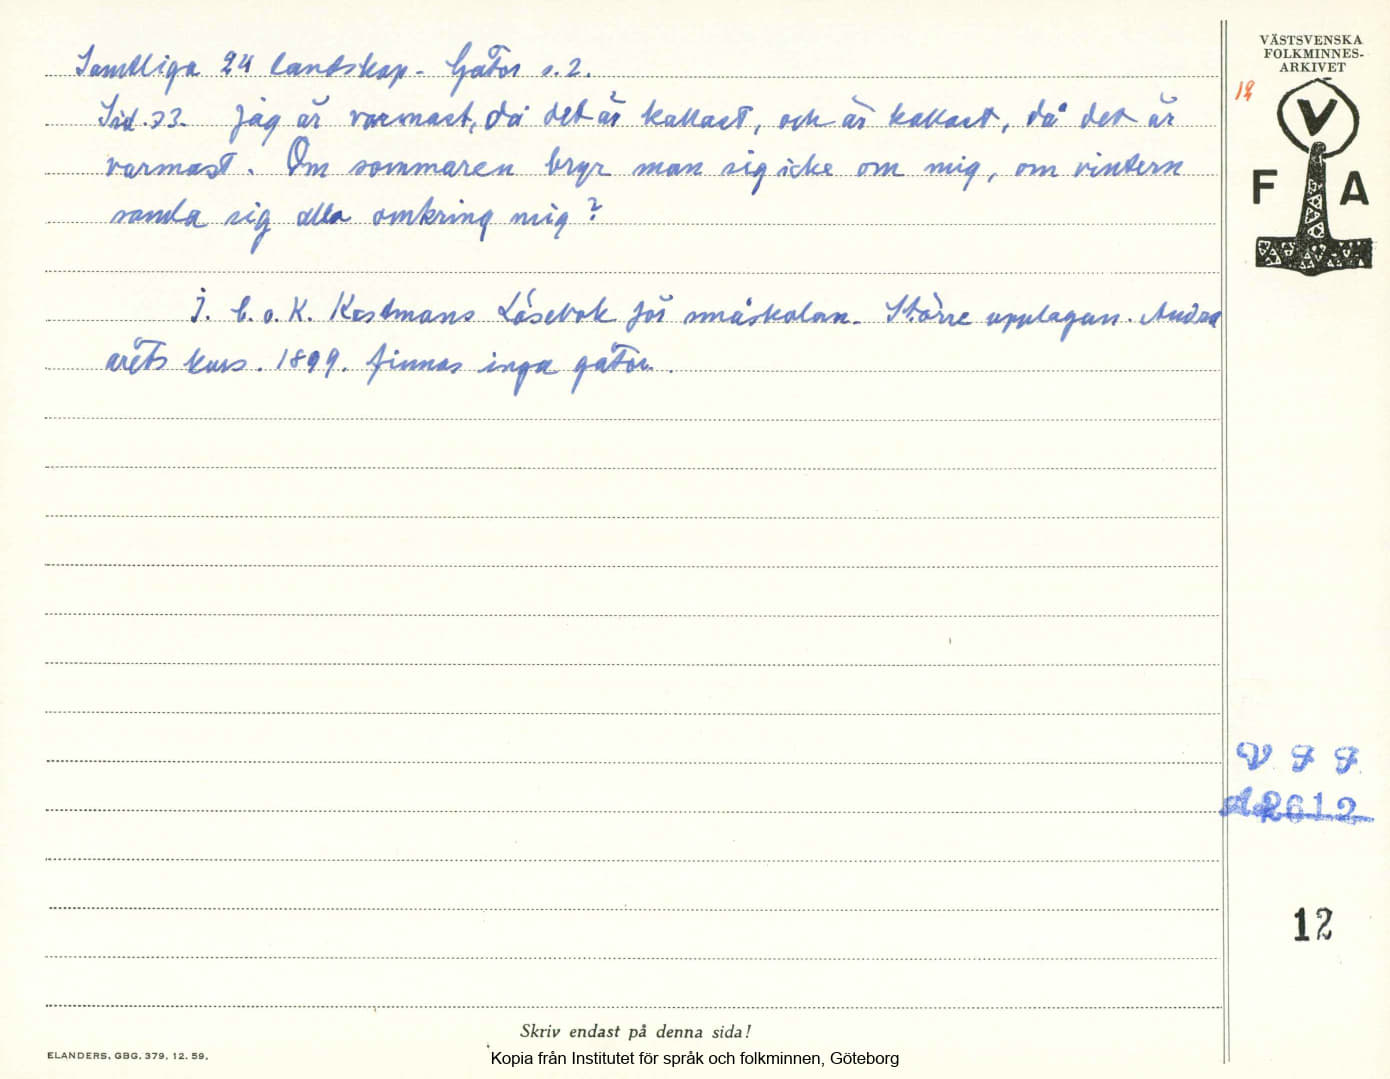 Samtliga 24 landskap - Gåtor s. 2.
Sid. 33. Jag är varmast, då det är kallast, och är kallast, då det är
varmast. Om sommaren bryr man sig icke om mig, om vintern
samla sig alla omkring mig?
I. C. o. K. Kastmans Läsebok för småskolan. Större upplagan. Andra
årets kurs. 1899. finnas inga gåtor.
VÄSTSVENSKA
FOLKMINNES-
ARKIVET
12
V
F A
V F F
2612
12
Skriv endast på denna sida!
ELANDERS, GBG, 379, 12. 59.
Kopia från Institutet för språk och folkminnen, Göteborg